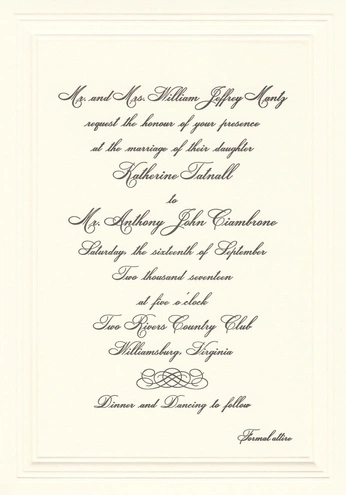 Mr. and Mrs. William Jeffrey Mantz
request the honour of your presence
at the marriage of their daughter
Katherine Tatnall
to
Mr. Anthony John Ciambrone
Saturday, the sixteenth of September
Two thousand seventeen
at five o'clock
Two Rivers Country Club
Williamsburg, Virginia
Dinner and Dancing to follow
Formal attire